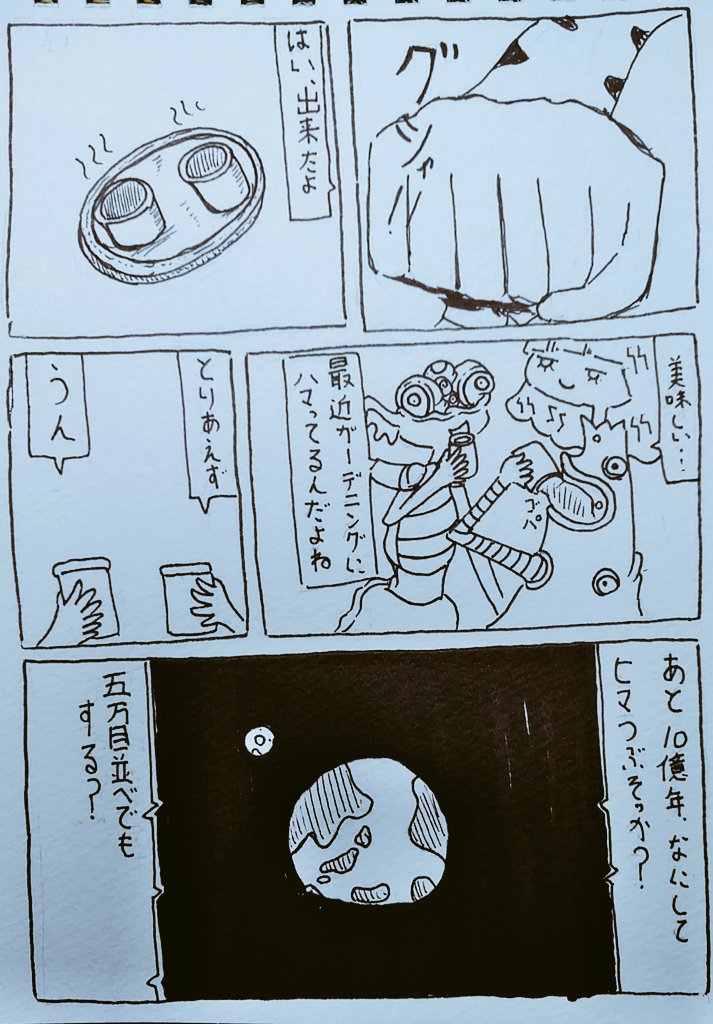 グ
シャ
リ
はい、出来たよ
美味しい…
ゴパ
最近ガーデニングに
ハマってるんだよね
とりあえず
うん
あと10億年、なにして
ヒマつぶそっか?
五万目並べでも
する?